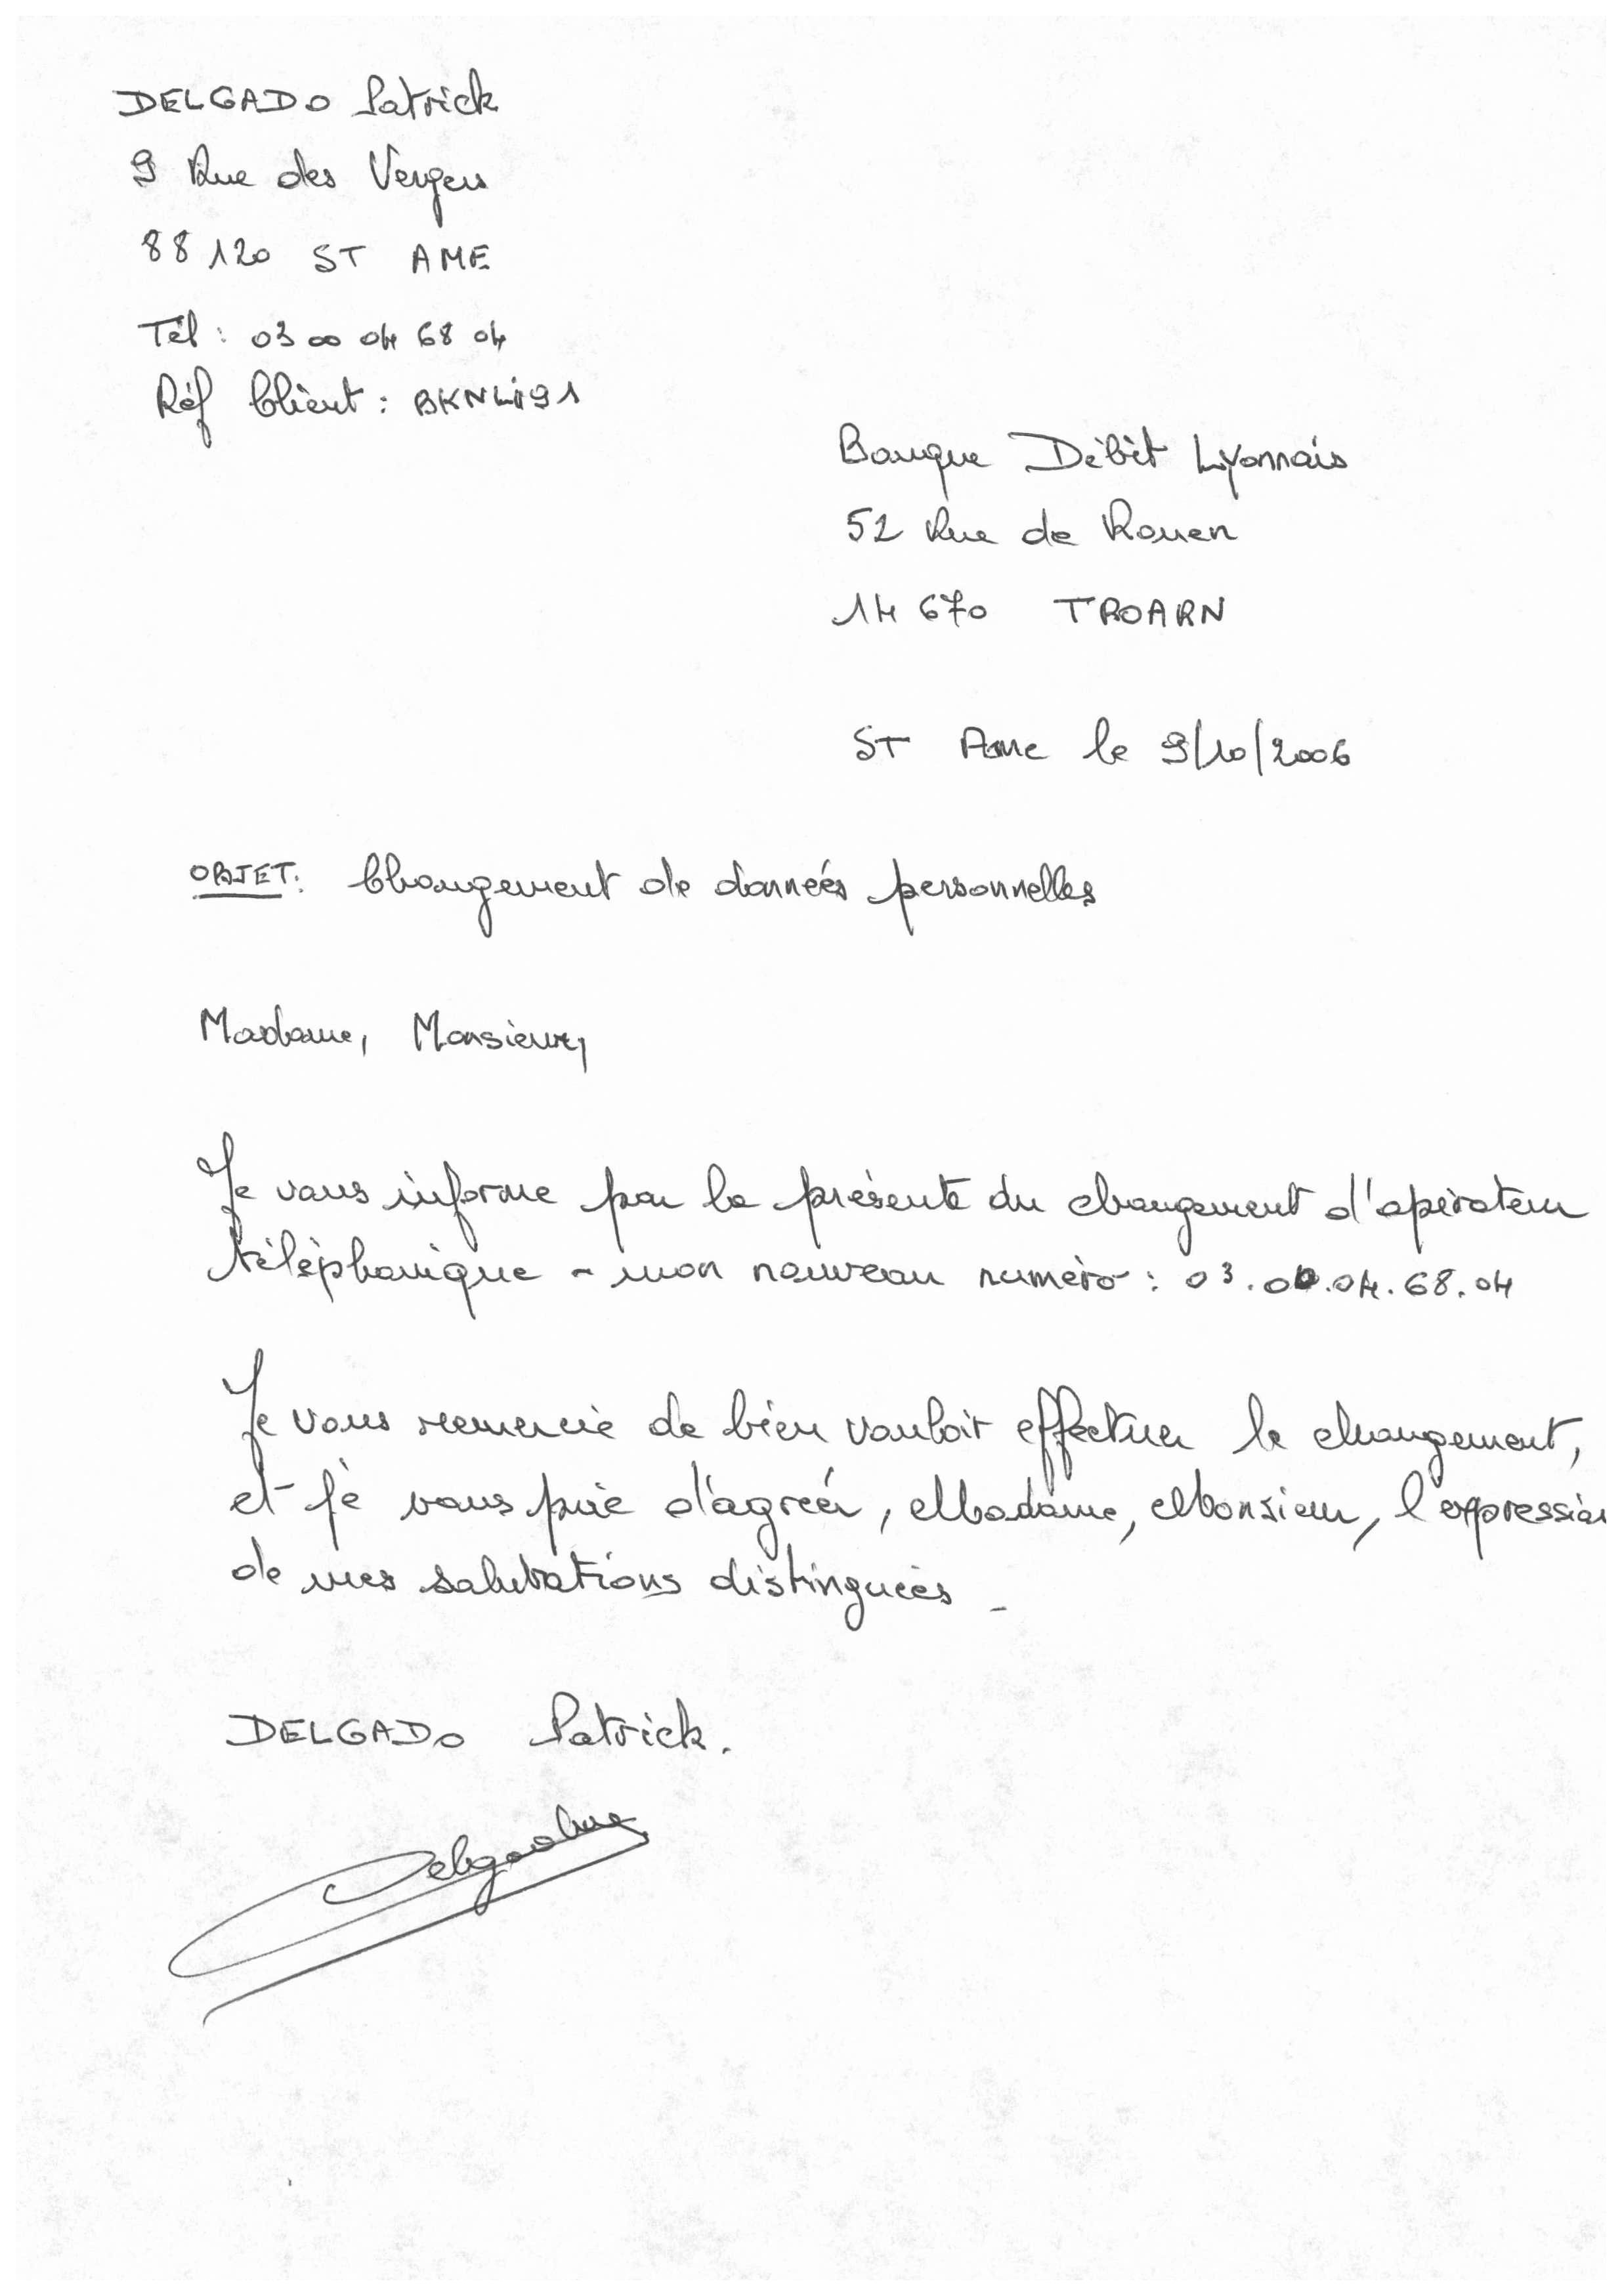 DELGADO Patrick
9 Rue des Vergers
88120 ST AME
Tél : 03 00 04 68 04
Réf Client : BKNLI91
Banque Débit Lyonnais
52 Rue de Rouen
14 670 TROARN
ST Ame le 9/10/2006
OBJET: Changement de données personnelles
Madame, Monsieur,
Je vous informe par la présente du changement d'opérateur
téléphonique - mon nouveau numéro : 03.00.04.68.04
Je vous remercie de bien vouloir effectuer le changement,
et je vous prie d'agréer, Madame, Monsieur, l'expression
de mes salutations distinguées -
DELGADO Patrick.